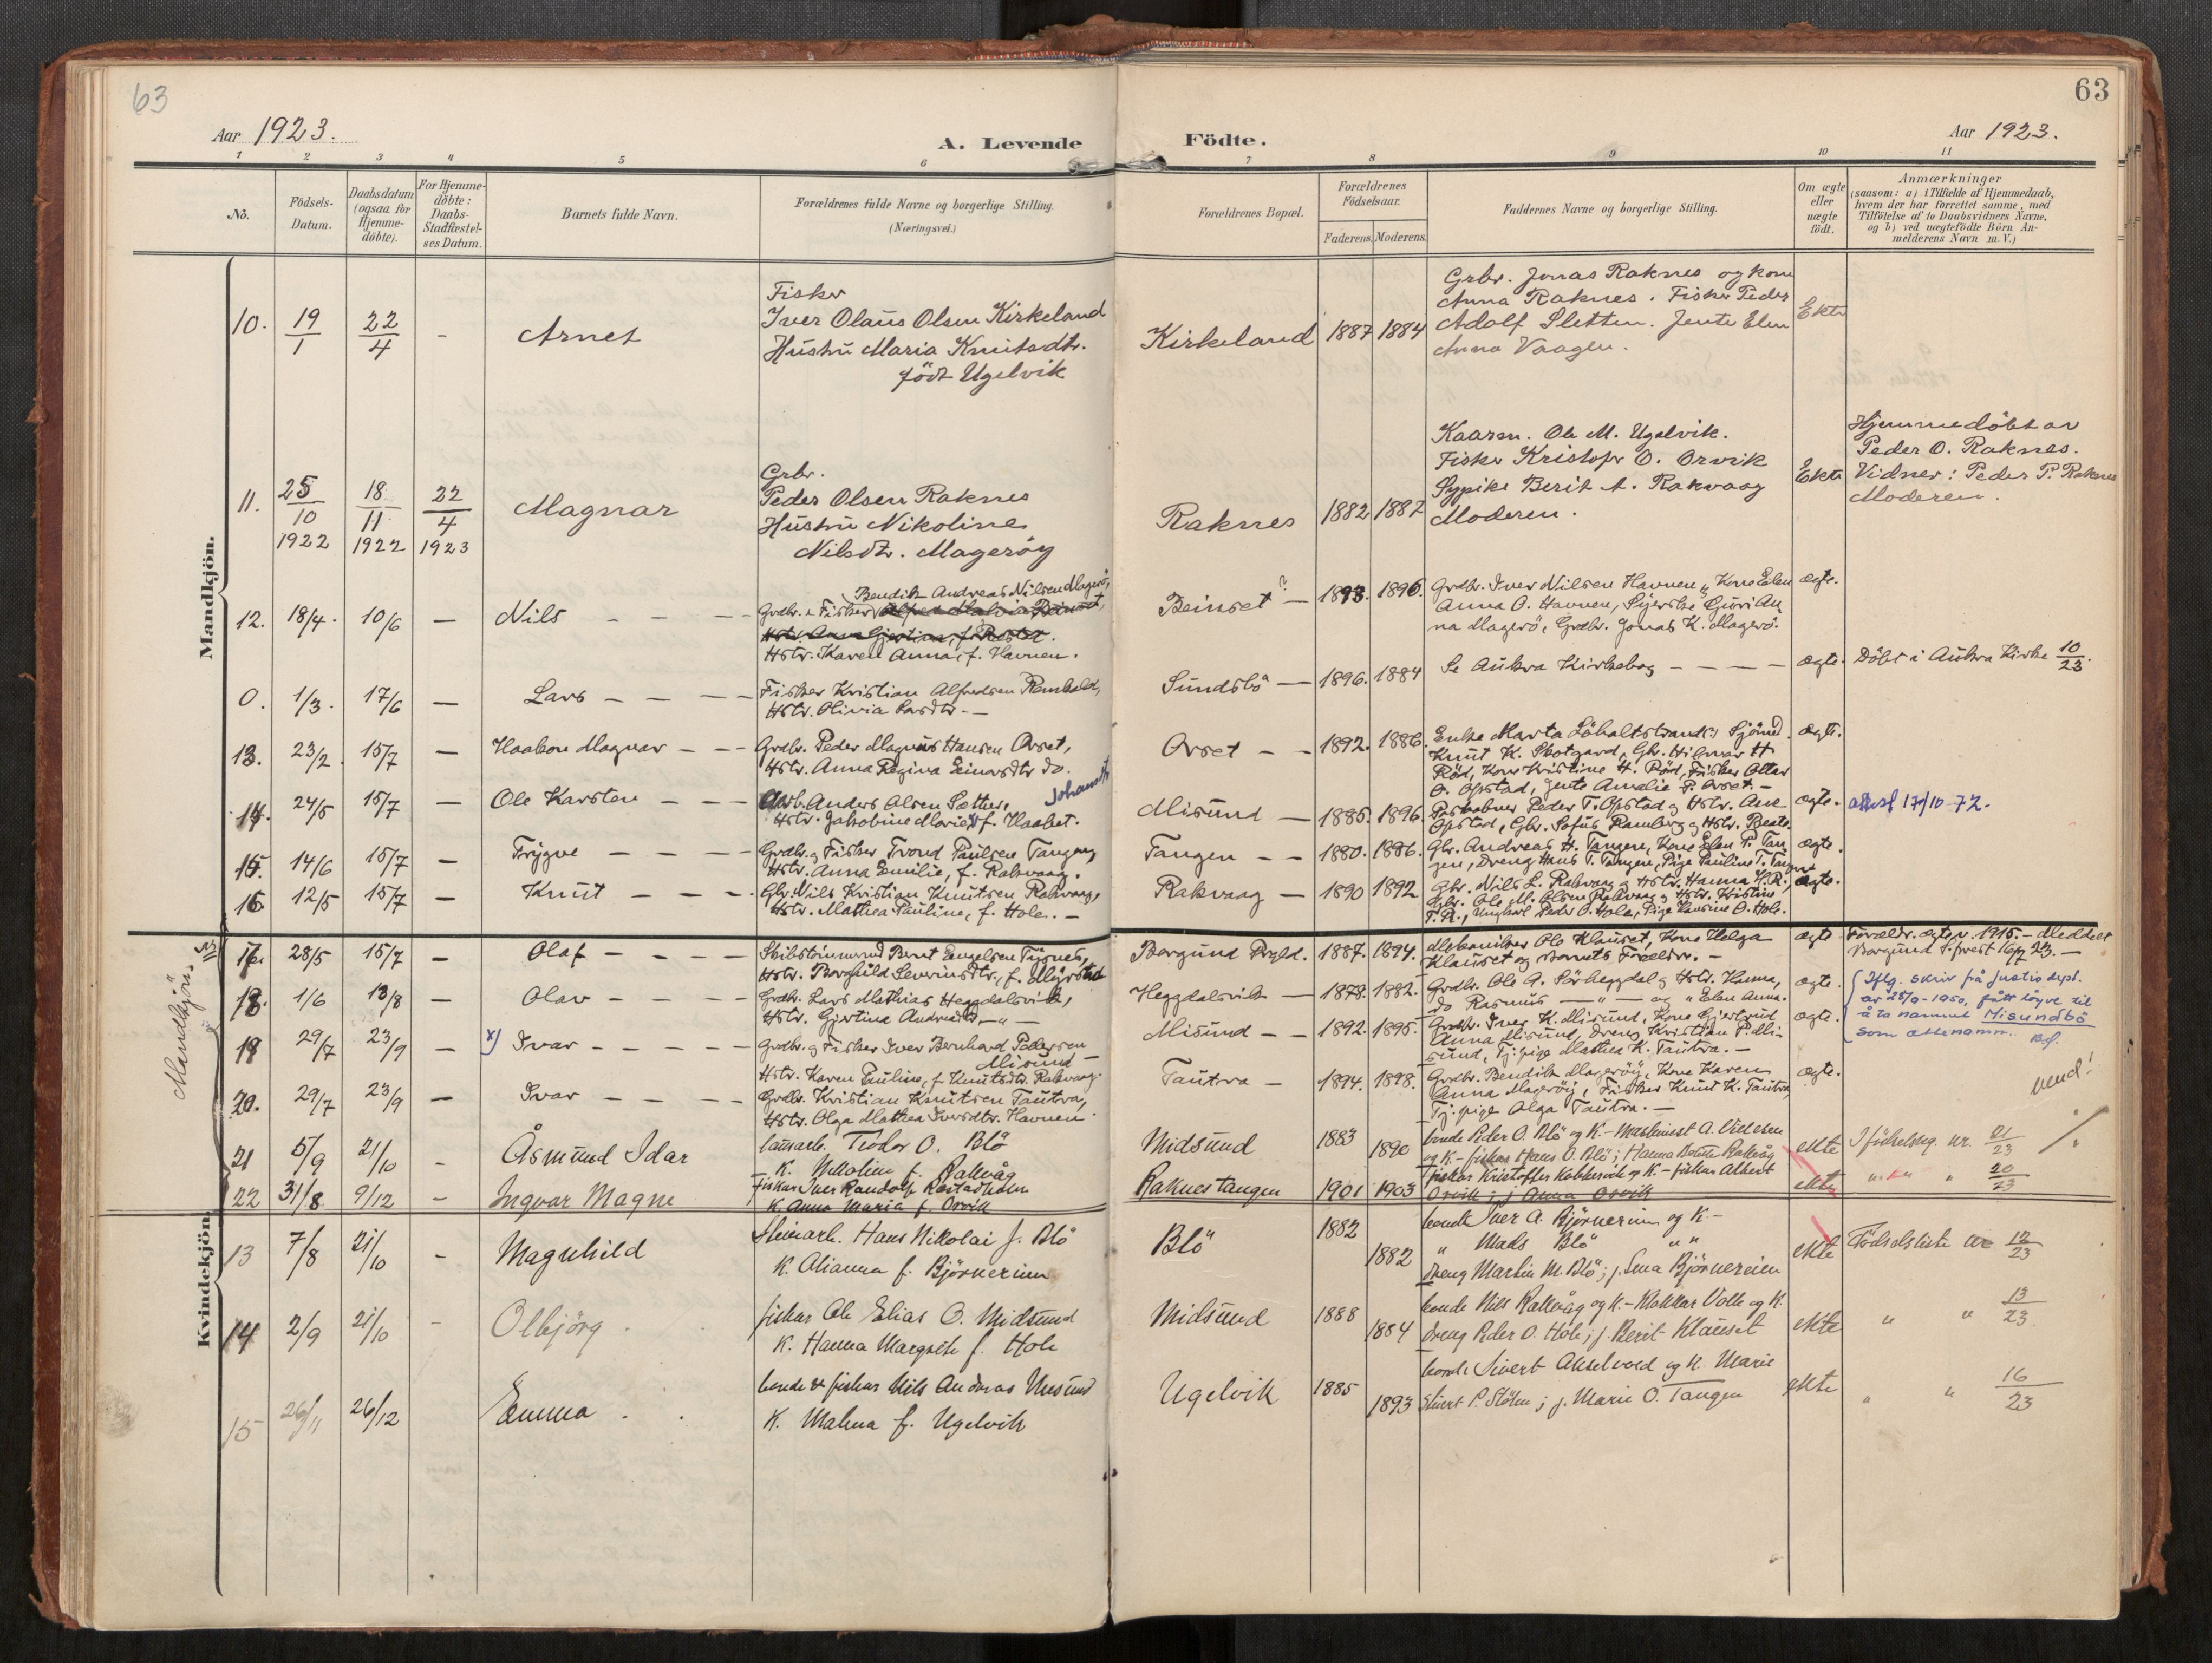 63
63
Aar 1923.
A. Levende
Födte.
Aar 1923.
1 2 3 4 5 6 7 8 9 10 11
No.
Födsels-
Datum.
Daabsdatum
(ogsaa for
Hjemme-
döbte).
For Hjemme-
döbte:
Daabs-
Stadfæstel-
ses Datum.
Barnets fulde Navn.
Forældrenes fulde Navne og borgerlige Stilling.
(Næringsvei.)
Forældrenes Bopæl.
Forældrenes
Födselsaar.
Faderens. Moderens.
Faddernes Navne og borgerlige Stilling.
Om ægte
eller
uægte
født.
Anmærkninger
(saasom: a) i Tilfælde af Hjemmedaab,
hvem der har forrettet samme, med
Tilföielse af to Daabsvidners Navne.
og b) ved uægtefödte Börn An-
melderens Navn m. V.)
Mandkjön.
10. 19/1 22/4 - Arnet
Fisker
Iver Olaus Olsen Kirkeland
Hustru Maria Knutsdtr.
født Ugelvik
Kirkeland 1887 1884
Grbr. Jonas Raknes og kone
Anna Raknes. Fisker Peder
Adolf Sletten. Jente Elen
Anna Vaagen.
Ekte
11. 25/10 1922 18/11 1922 22/4 1923 Magnar
Grbr.
Peder Olsen Raknes
Hustru Nikoline
Nilsdtr. Mageröy
Raknes 1882 1887
Kaarm. Ole M. Ugelvik.
Fisker Kristofer O. Orvik
Sypike Berit A. Rakvaag
Moderen.
Ekte
Hjemmedöbt av
Peder O. Raknes.
Vidner: Peder P. Raknes
Moderen.
12. 18/4. 10/6 — Nils
Bendik Andreas Nilsen Magerö,
Grdbr. & Fisker
Hstr. Karen Anna, f. Havnen.
Beinset? — 1893. 1896.
Grdbr. Iver Nilsen Havnen, Kone Elen
Anna O. Havnen, Syerske Guri An
na Magerö, Grdbr. Jonas K. Magerö.
ægte.
0. 1/3. 17/6 — Lars
Fisker Kristian Alfredsen
Hstr. Olivia Larsdtr. —
Sundsbö — 1896. 1884
Se Aukra Kirkebog — — — — ægte.
Döbt i Aukra Kirke 10/23.
13. 23/2. 15/7 — Haakon Magnar
Grdbr. Peder Magnus Hansen Orset,
Hstr. Anna Regina Einarsdtr do.
Orset — — 1892. 1886.
Enke Marta Löhaltstrand; Sjömd
Knut K. Skotgard, Gbr. Hilmar H
Röd, Kone Kristine H. Röd, Fisker Ottar
O. Opstad, Jente Amalie P. Orset. —
ægte.
14. 24/5 15/7 — Ole Karsten
Grdbr. Anders Olsen Sæther,
Hstr. Jakobine Marie f. Haaset.
Misund — 1885. 1896.
Postaabner Peder T. Opstad og Hstr. Ane
Opstad, Gbr. Sofus Ramberg og Hstr. Beate.
ægte. attest 17/10-72.
15. 14/6 15/7 — Trygve
Grdbr. og Fisker Trond Paulsen Tangen,
Hstr. Anna Emilie, f. Rakvaag.
Tangen — — 1880. 1886.
Gbr. Andreas H. Tangen, Kone Elen P. Tan
gen, Dreng Hans T. Tangen, Pige Pauline T. Tangen
ægte.
16. 12/5 15/7 — Knut
Gbr. Nils Kristian Knutsen Rakvaag,
Hstr. Mathea Pauline, f. Hole. —
Rakvaag — 1890 1892
Gbr. Nils L. Rakvaag og Hstr. Hanna K. R.,
Gbr. Ole M. Olsen Rakvaag og Hstr. Kristine
T. R., Ungkarl Peder O. Hole, Pige Karsine O. Hole.
ægte.
Mandkjön
17. 28/5 15/7 — Olaf
Skibstömmermd Bernt Engelsen Fygnes,
Hstr. Borghild Severinsdtr., f.
Borgund Prgld. 1887. 1894.
Mekaniker Ole Klauset, Kone Helga
Klauset og Barnets Forældre. —
ægte
Forældr. ægtev. 1915. — Meddelt
Borgund S.prest 16/7 23. —
18. 1/6 13/8 — Olav
Grdbr. Lars Mathias Heggdalsvik,
Hstr. Gjertine Andreasdtr — " —
Heggdalsvik — 1878. 1882.
Grdbr. Ole A. Sörheggdal og Hstr. Hanna,
do Rasmus — " — og " Elen Anna.
ægte.
19 29/7 23/9 — x) Ivar
Grdbr. og Fisker Iver Bernhard Pedersen
Misund —
Hstr. Karen Pauline, f. Knutsdtr. Rakvaag.
Misund — — 1892. 1895.
Grdbr. Iver K. Misund, Kone Gjertrud
Anna Misund, Dreng Kristian P. Mi-
sund, Tj.pige Mathea K. Tautra. —
ægte.
Iflg. skriv frå Justis dept.
av 28/9-1950, fått löyve til
å ta namnet Misundbö
som ættenamn.
20. 29/7 23/9 — Ivar
Grdbr. Kristian Knutsen Tautra,
Hstr. Olga Mathea Iversdtr. Havnen.
Tautra — 1894. 1898.
Grdbr. Bendik Mageröy, Kone Karen
Anna Mageröy, Fisker Knut K. Tautra,
Tj.pige Olga Tautra. —
ægte.
vend!
21 5/9 21/10 - Åsmund Idar
Teodor O. Blö
K. Nikoline f. Rakvåg
Midsund 1883 1890
bonde Peder O. Blö og K. - Maskinist A.
og K. - fiskar Hans O. Blö; Hanna Rakvåg
ekte
I födselsreg. nr. 21/23
22 31/8 9/12 - Ingvar Magne
fiskar Iver Randolf
K. Anna Maria f. Orvik
Raknestangen 1901 1903
fiskar Kristoffer og K - fiskar Albert
Orvik; j Anna Orvik
ekte " " 20/23
Kvindekjön.
13 7/8 21/10 - Magnhild
Hans Nikolai J. Blö
K. Olianna f. Bjørnereim
Blö 1882 1882
bonde Iver A. Bjørnereim og K-
" Mads Blö " "
dreng Martin M. Blö; j. Bjørnereim
ekte Födselsliste nr 12/23
14 2/9 21/10 - Olbjörg
fiskar Ole Elias O. Midsund
K. Hanna Margrete f. Hole
Midsund 1888 1884
bonde Nils Rakvåg og K. - Klokkar Volle og K.
dreng Peder O. Hole; j. Berit Klauset
ekte " " 13/23
15 26/11 26/12 Emma
bonde & fiskar Nils Andreas
K. Malena f. Ugelvik
Ugelvik 1885 1893
bonde Sivert Akselvold og K. Marie
Sivert P. Stölen; j. Marie O. Tangen
ekte " " 16/23